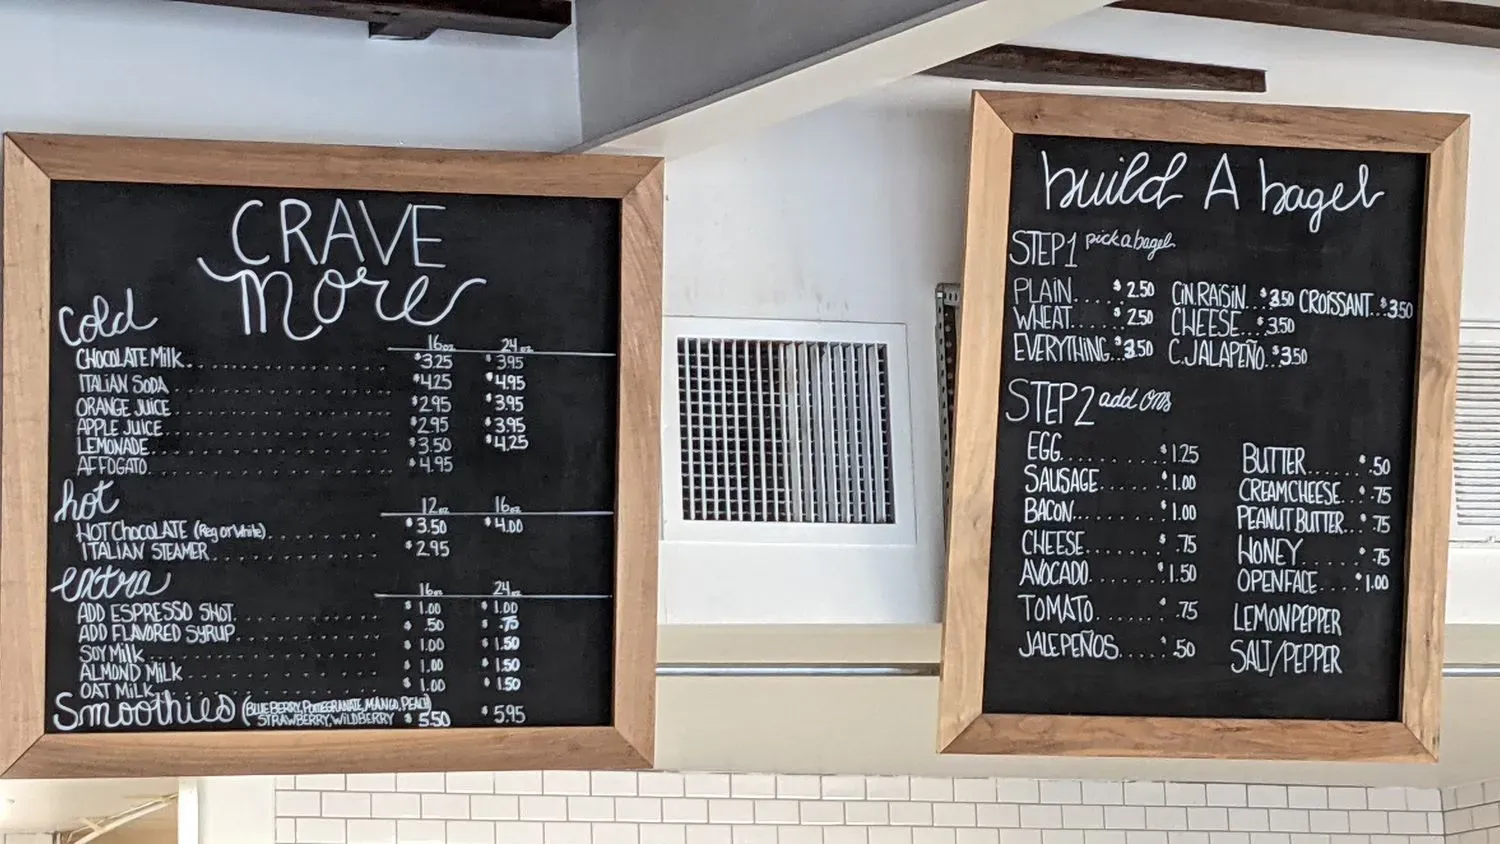 CRAVE
More
Cold 16oz 24oz
CHOCOLATE Milk $3.25 $3.95
ITALIAN SODA $4.25 $4.95
ORANGE JUICE $2.95 $3.95
APPLE JUICE $2.95 $3.95
LEMONADE $3.50 $4.25
AFFOGATO $4.95
hot 12oz 16oz
HOT CHOCOLATE (Reg or White) $3.50 $4.00
ITALIAN STEAMER $2.95
extra 16oz 24oz
ADD ESPRESSO SHOT $1.00 $1.00
ADD FLAVORED SYRUP $.50 $.75
SOY Milk $1.00 $1.50
ALMOND MILK $1.00 $1.50
OAT MILK $1.00 $1.50
Smoothies (BLUEBERRY, POMEGRANATE, MANGO, PEACH
STRAWBERRY, WILDBERRY $5.50 $5.95
build A bagel
STEP 1 pick a bagel
PLAIN.... $2.50 CIN.RAISIN... $3.50 CROISSANT..$3.50
WHEAT.... $2.50 CHEESE... $3.50
EVERYTHING..$3.50 C.JALAPEÑO..$3.50
STEP 2 add ons
EGG $1.25
SAUSAGE $1.00
BACON $1.00
CHEESE $.75
AVOCADO $1.50
TOMATO $.75
JALEPEÑOS $.50
BUTTER $.50
CREAMCHEESE $.75
PEANUT BUTTER $.75
HONEY $.75
OPENFACE $1.00
LEMONPEPPER
SALT/PEPPER